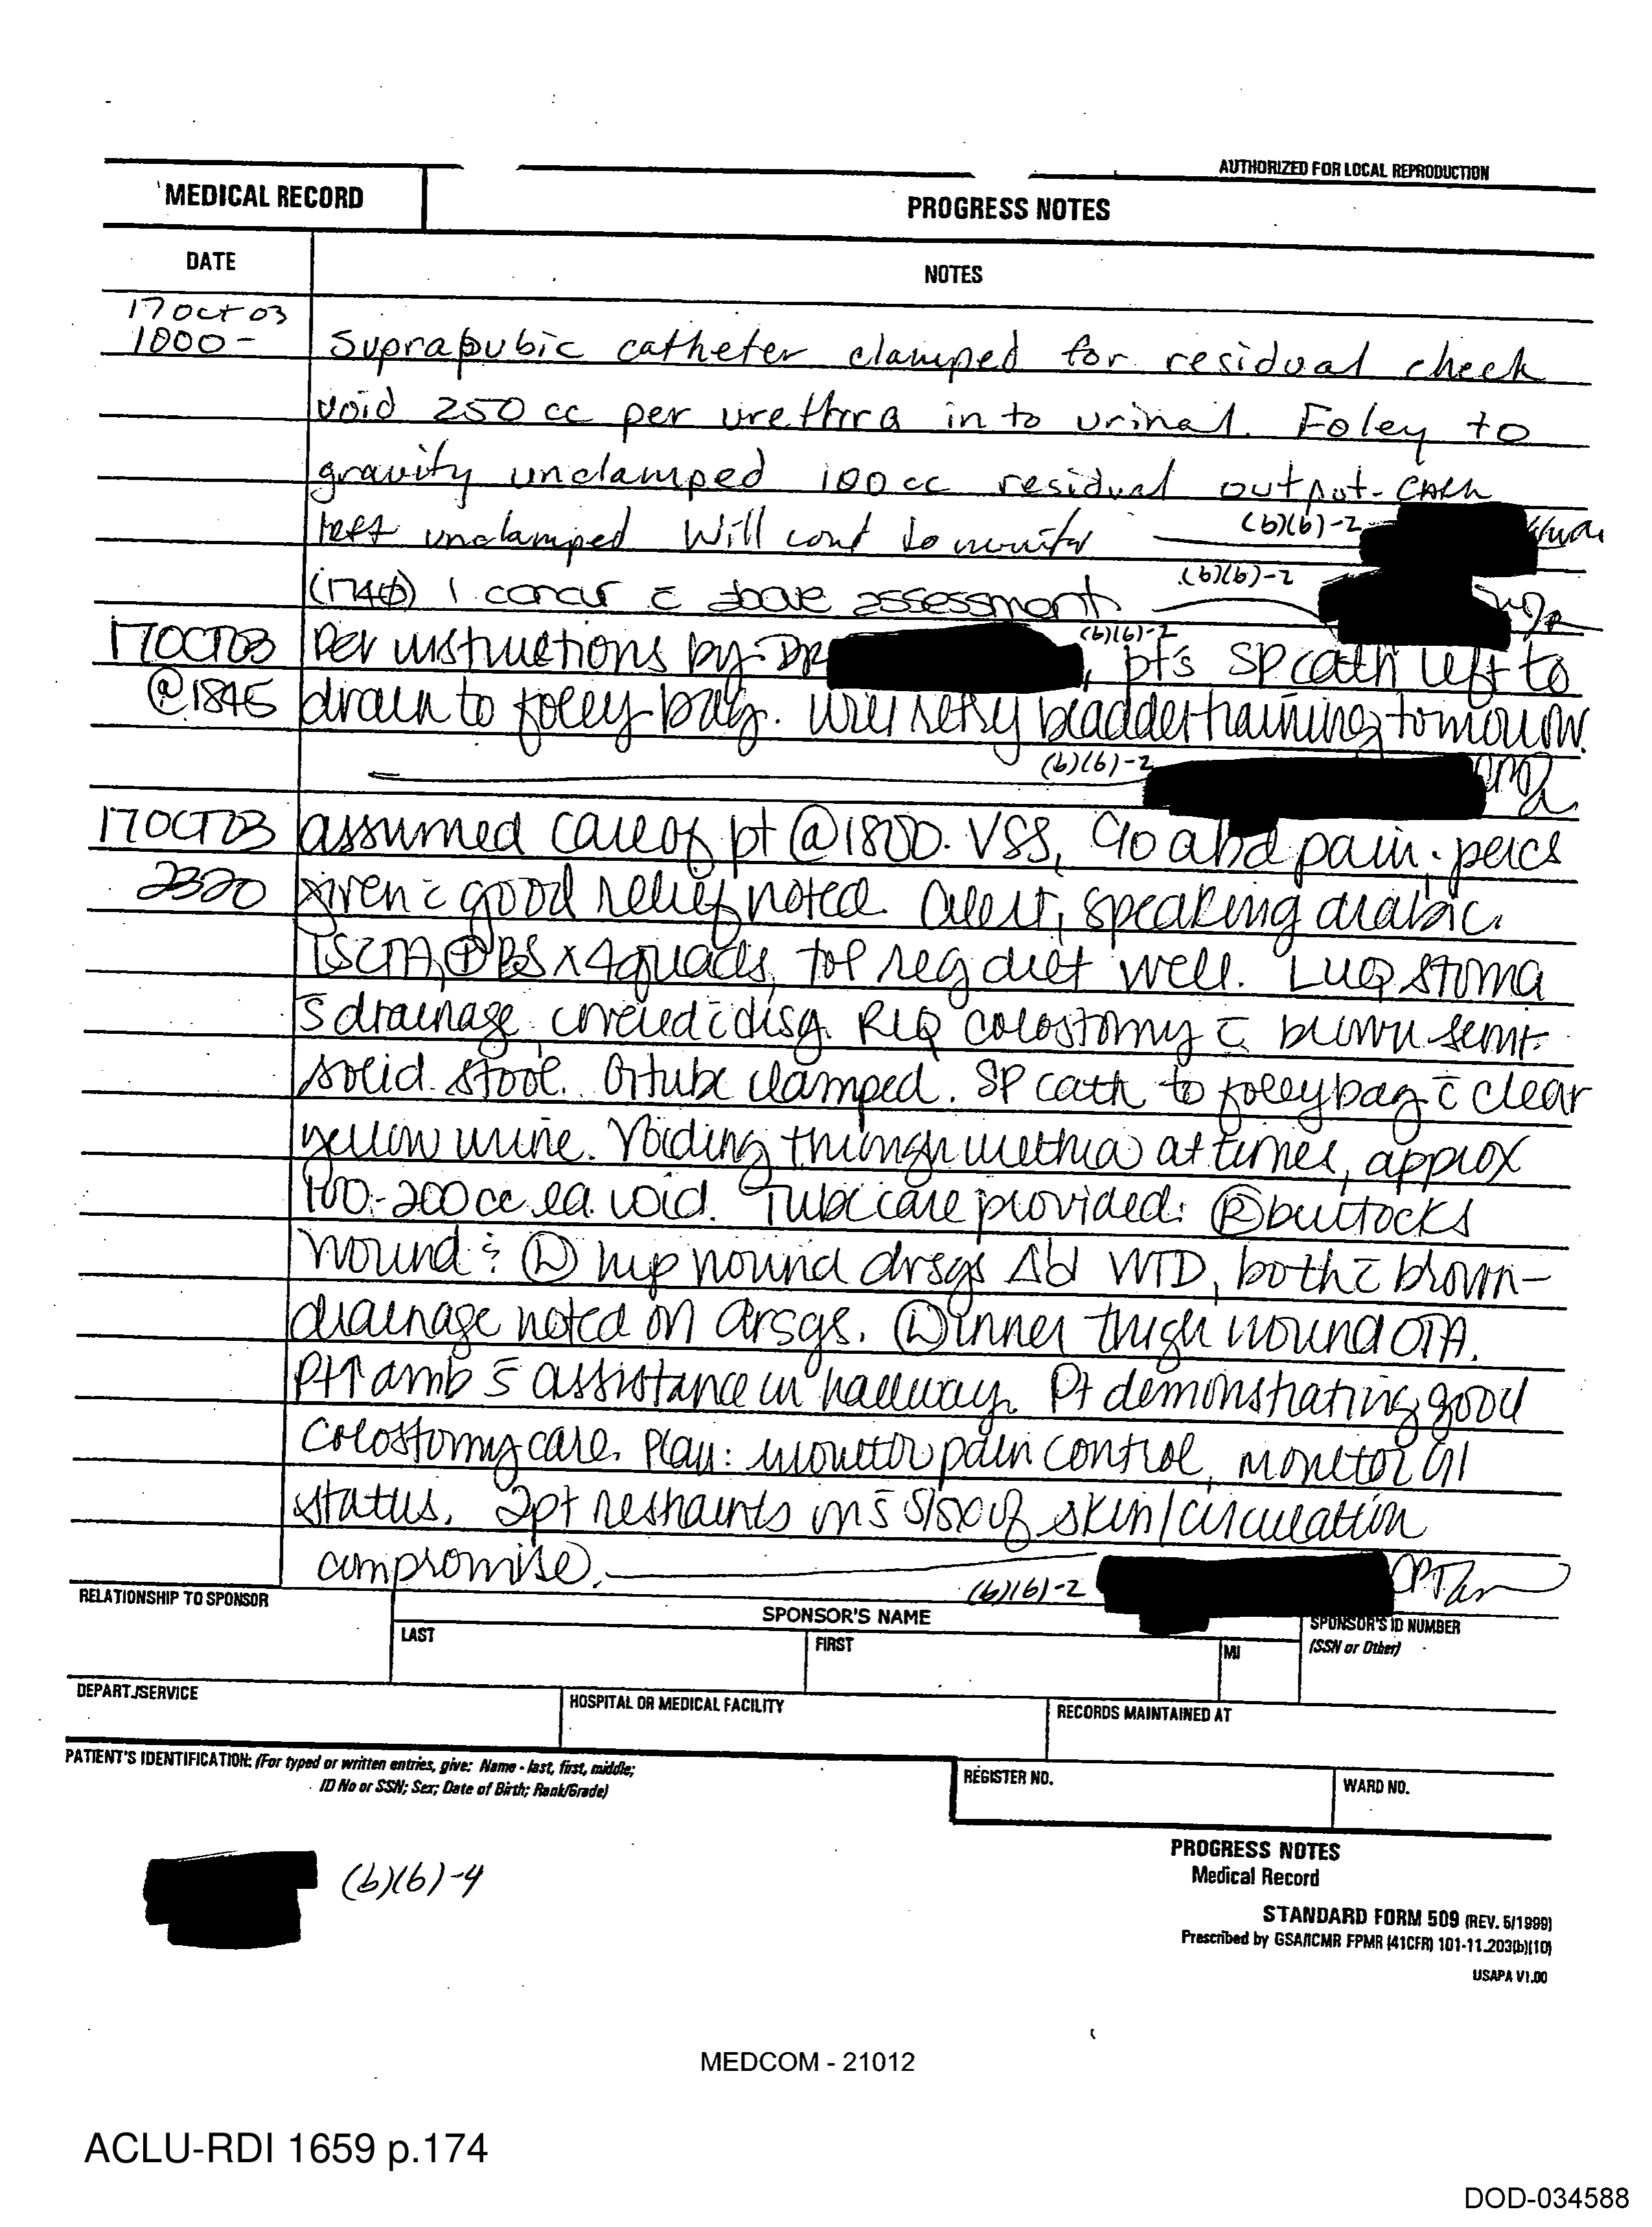 AUTHORIZED FOR LOCAL REPRODUCTION
MEDICAL RECORD
PROGRESS NOTES
DATE
NOTES
17 Oct 03
1000 - Suprapubic catheter clamped for residual check
void 250 cc per urethra in to urinal. Foley to
gravity unclamped 100 cc residual output. Cath
left unclamped Will cont to monitor (b)(6)-2
(1740) I concur c̄ above assessment (b)(6)-2
17OCT03 Per instructions by DR (b)(6)-2, pt's SP cath left to
@1845 drain to foley bag. Will retry bladder training tomorrow.
(b)(6)-2
17OCT03 assumed care of pt @1800. VSS, c/o abd pain. percs
2320 given c̄ good relief noted. Alert, speaking arabic.
LSCTA, ⊕BS x 4 quads, tol reg diet well. LUQ stoma
s̄ drainage, covered c̄ drsg. RLQ colostomy c̄ brown semi-
solid stool. G tube clamped. SP cath to foley bag c̄ clear
yellow urine. Voiding through urethra at times, approx
100-200cc ea. void. Tube care provided. Ⓡ buttocks
wound & Ⓛ hip wound drsgs Δ'd WTD, both c̄ brown
drainage noted on drsgs. Ⓛ inner thigh wound OTA.
Pt ↑ amb s̄ assistance in hallway. Pt demonstrating good
colostomy care. Plan: monitor pain control, monitor GI
status. 2pt restraints on s̄ s/sx of skin/circulation
compromise. (b)(6)-2 CPT
RELATIONSHIP TO SPONSOR
SPONSOR'S NAME
LAST
FIRST
MI
SPONSOR'S ID NUMBER
(SSN or Other)
DEPART./SERVICE
HOSPITAL OR MEDICAL FACILITY
RECORDS MAINTAINED AT
PATIENT'S IDENTIFICATION: (For typed or written entries, give: Name - last, first, middle;
ID No or SSN; Sex; Date of Birth; Rank/Grade)
REGISTER NO.
WARD NO.
(b)(6)-4
PROGRESS NOTES
Medical Record
STANDARD FORM 509 (REV. 5/1999)
Prescribed by GSA/ICMR FPMR (41CFR) 101-11.203(b)(10)
USAPA V1.00
MEDCOM - 21012
ACLU-RDI 1659 p.174
DOD-034588